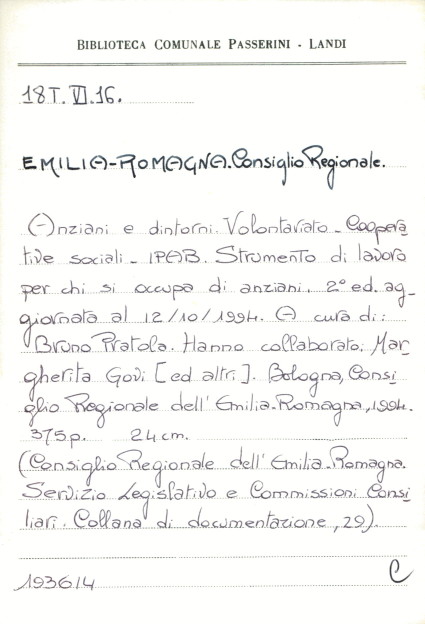 BIBLIOTECA COMUNALE PASSERINI - LANDI
18T.VI.16.
EMILIA-ROMAGNA.Consiglio Regionale.
Anziani e dintorni. Volontariato - Coopera
tive sociali - IPAB. Strumento di lavoro
per chi si occupa di anziani. 2° ed. ag-
giornata al 12/10/1994. A cura di:
Bruno Pratola. Hanno collaborato: Mar
gherita Govi [ed altri]. Bologna, Consi
glio Regionale dell'Emilia-Romagna, 1994.
375p. 24cm.
(Consiglio Regionale dell'Emilia-Romagna.
Servizio Legislativo e Commissioni Consi
liari. Collana di documentazione, 29).
193614 C